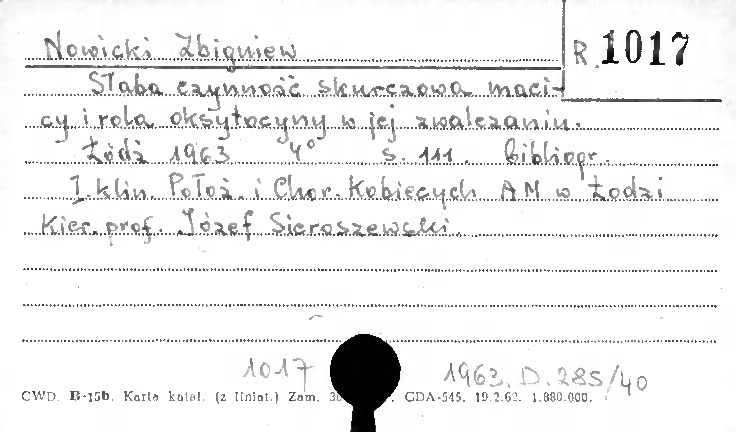 Nowicki Zbigniew
R. 1017
Słaba czynność skurczowa maci-
cy i rola oksytocyny w jej zwalczaniu.
Łódź 1963 4° s. 111. Bibliogr.
I klin. Położ. i Chor. Kobiecych AM w Łodzi
Kier. prof. Józef Sieroszewski.
1017 1963. D. 285/40
CWD. B-75b. Karta katal. (z liniat.) Zam. GDA-545. 19.2.62. 1.880.000.